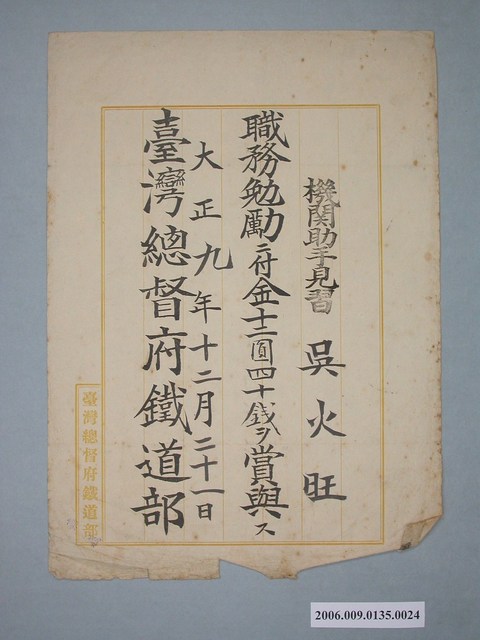 機関助手見習 吳火旺
職務勉勵ニ付金十二圓四十銭ヲ賞與ス
大正九年十二月二十一日
臺灣總督府鐵道部
臺灣總督府鐵道部
2006.009.0135.0024